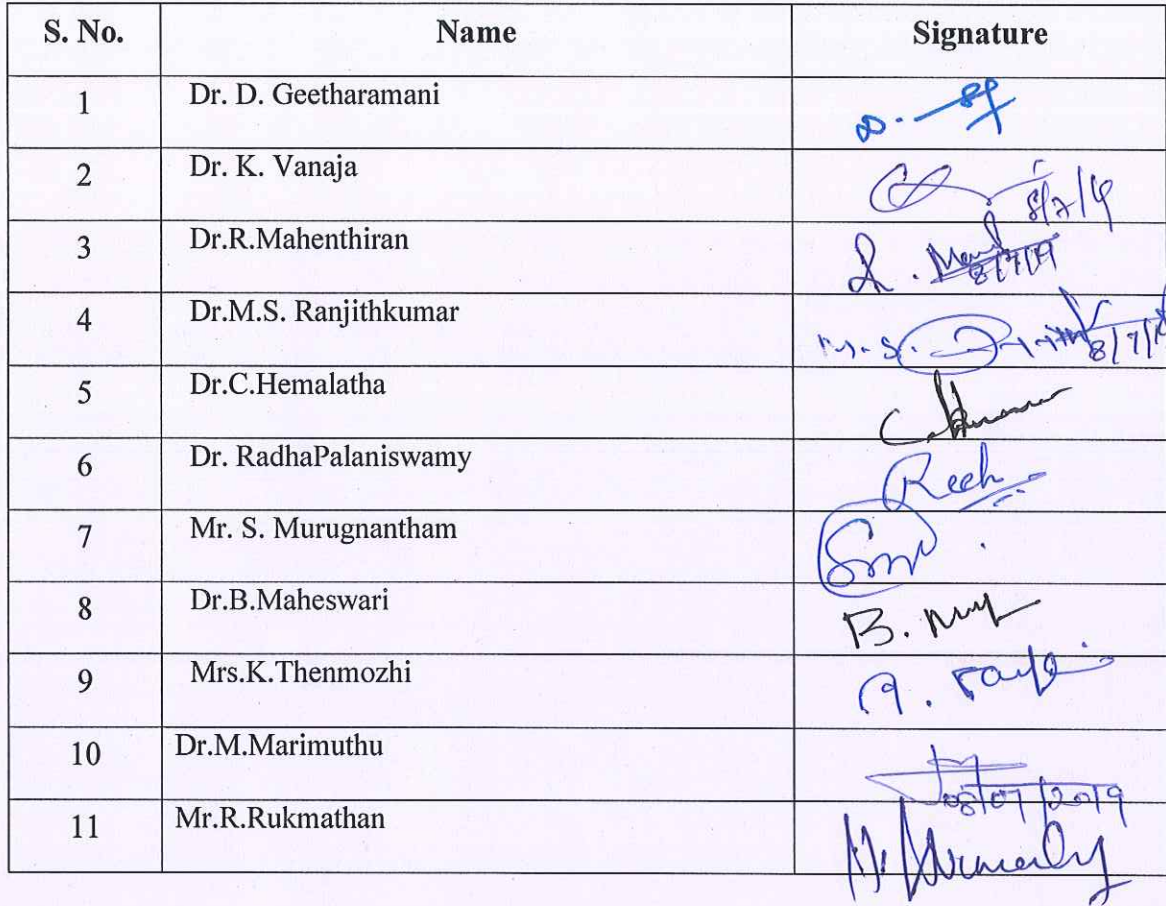 S. No. Name Signature
1 Dr. D. Geetharamani
2 Dr. K. Vanaja 8/7/19
3 Dr.R.Mahenthiran R. 8/7/19
4 Dr.M.S. Ranjithkumar M.S. 8/7/19
5 Dr.C.Hemalatha C.
6 Dr. RadhaPalaniswamy
7 Mr. S. Murugnantham
8 Dr.B.Maheswari B.
9 Mrs.K.Thenmozhi
10 Dr.M.Marimuthu 08/07/2019
11 Mr.R.Rukmathan